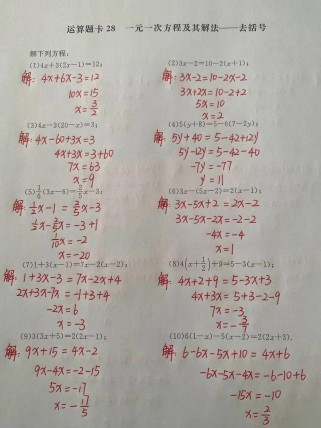 运算题卡 28 一元一次方程及其解法——去括号
解下列方程:
(1)4x+3(2x-1)=12;
解: 4x+6x-3=12
10x=15
x=3/2
(2)3x-2=10-2(x+1);
解: 3x-2=10-2x-2
3x+2x=10-2+2
5x=10
x=2
(3)4x-3(20-x)=3;
解: 4x-60+3x=3
4x+3x=3+60
7x=63
x=9
(4)5(y+8)=5-6(7-2y);
解: 5y+40=5-42+12y
5y-12y=5-42-40
-7y=-77
y=11
(5)1/6(3x-6)=2/5x-3;
解: 1/2x-1=2/5x-3
1/2x-2/5x=-3+1
1/10x=-2
x=-20
(6)3x-(5x-2)=2(x-1);
解: 3x-5x+2=2x-2
3x-5x-2x=-2-2
-4x=-4
x=1
(7)1+3(x-1)=7x-2(x-2);
解: 1+3x-3=7x-2x+4
2x+3x-7x=-1+3+4
-2x=6
x=-3
(8)4(x+1/2)+9=5-3(x-1);
解: 4x+2+9=5-3x+3
4x+3x=5+3-2-9
7x=-3
x=-3/7
(9)3(3x+5)=2(2x-1);
解: 9x+15=4x-2
9x-4x=-2-15
5x=-17
x=-17/5
(10)6(1-x)-5(x-2)=2(2x+3).
解: 6-6x-5x+10=4x+6
-6x-5x-4x=-6-10+6
-15x=-10
x=2/3